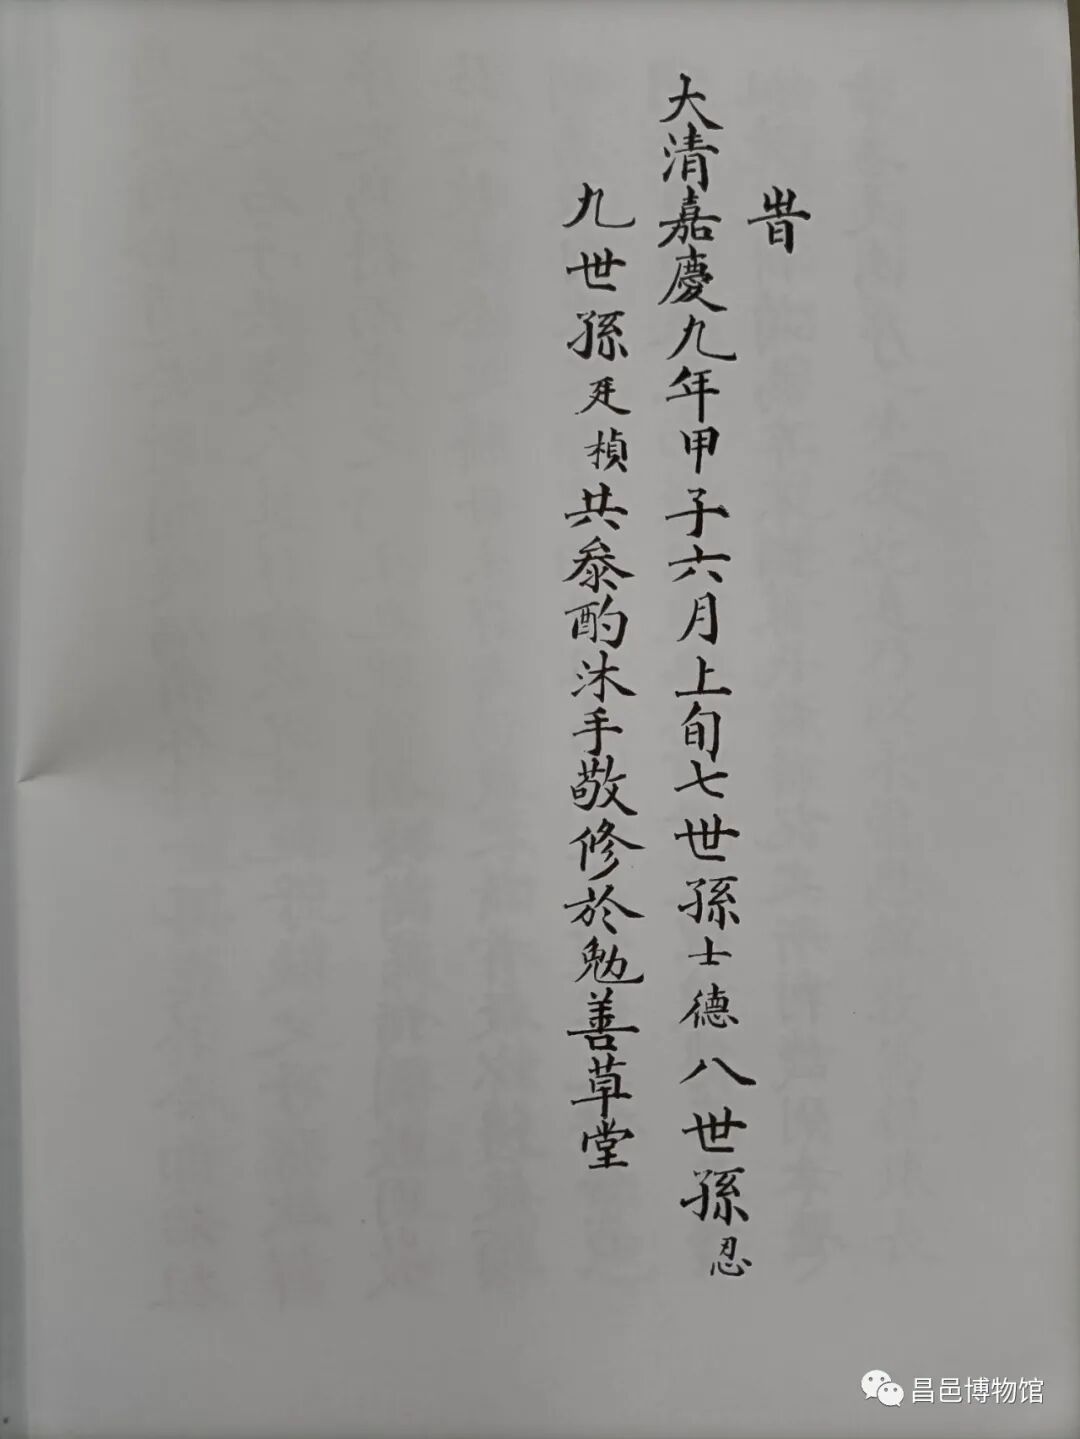 旹
大清嘉慶九年甲子六月上旬七世孫士德八世孫忍
九世孫廷楨共叅酌沐手敬修於勉善草堂
昌邑博物馆